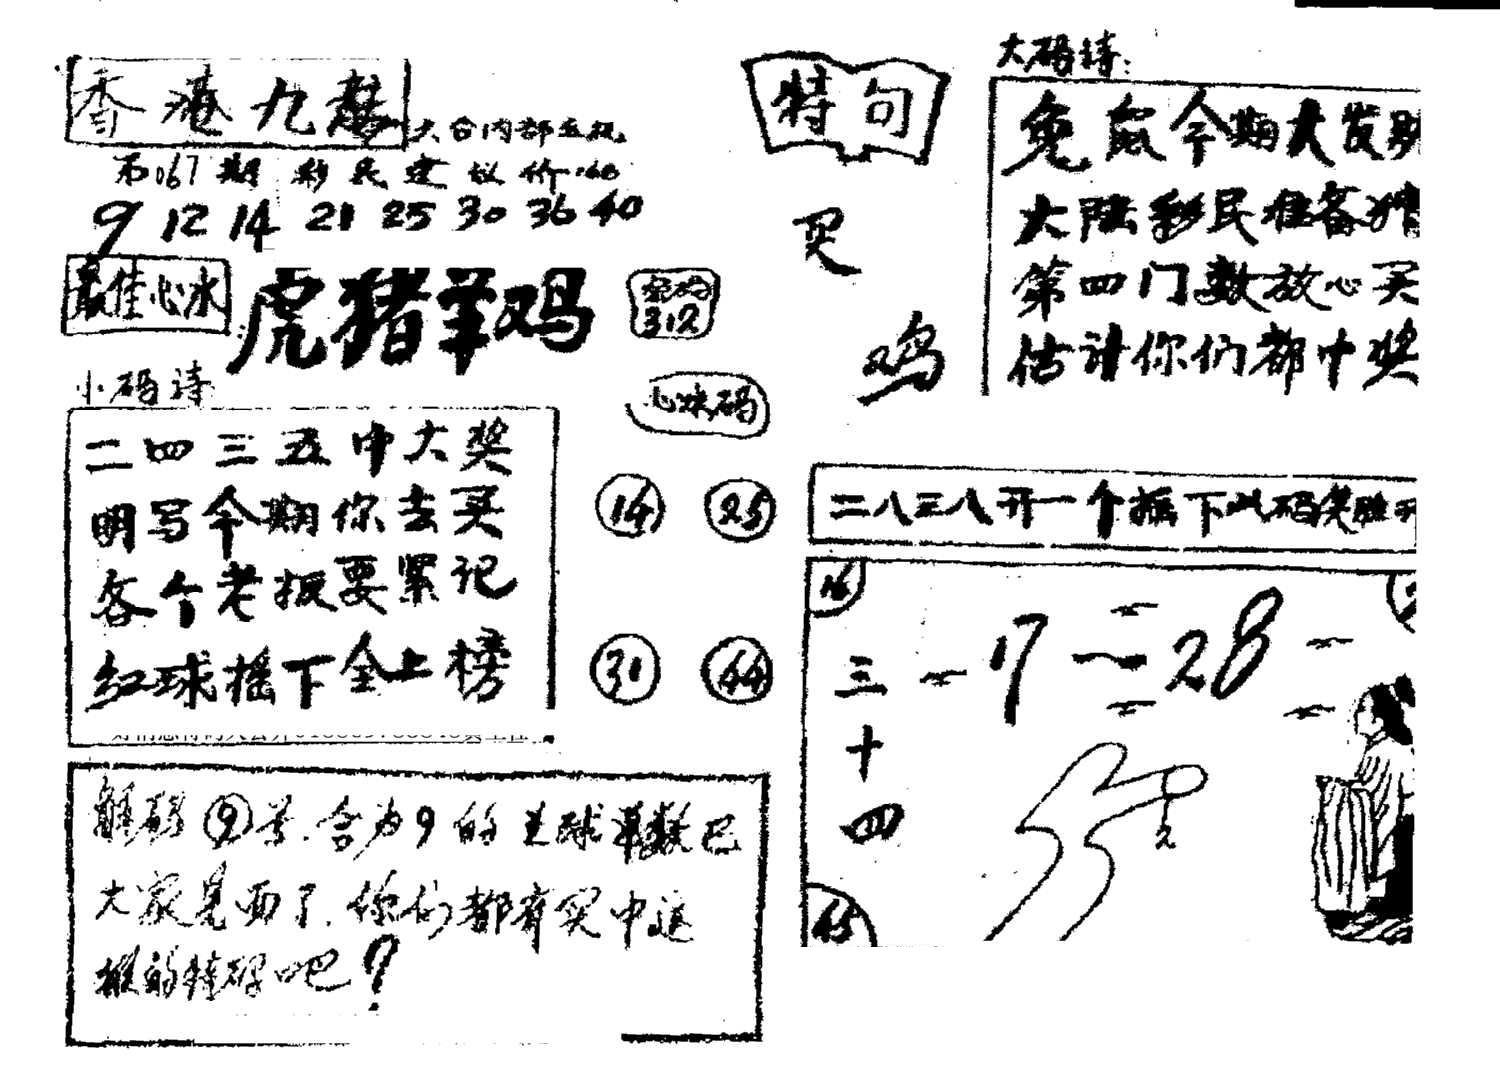 香港九龙
大台内部立报
第067期 彩民建议价:.60
9 12 14 21 25 30 36 40
最佳心水
虎猪羊鸡
密码
312
小码诗:
二四三五中大奖
明写今期你去买
各个老板要紧记
红球摇下全上榜
心水码
14 25
31 44
解码⑨号.含为9的类球单数已
大家见面了.你们都有买中这
期的特码吧?
特句
买
鸡
大码诗:
兔鼠今期大发财
大陆彩民准备
第四门数放心买
估计你们都中奖
二八三八开一个摇下此码笑
16
三十四
17—28
45